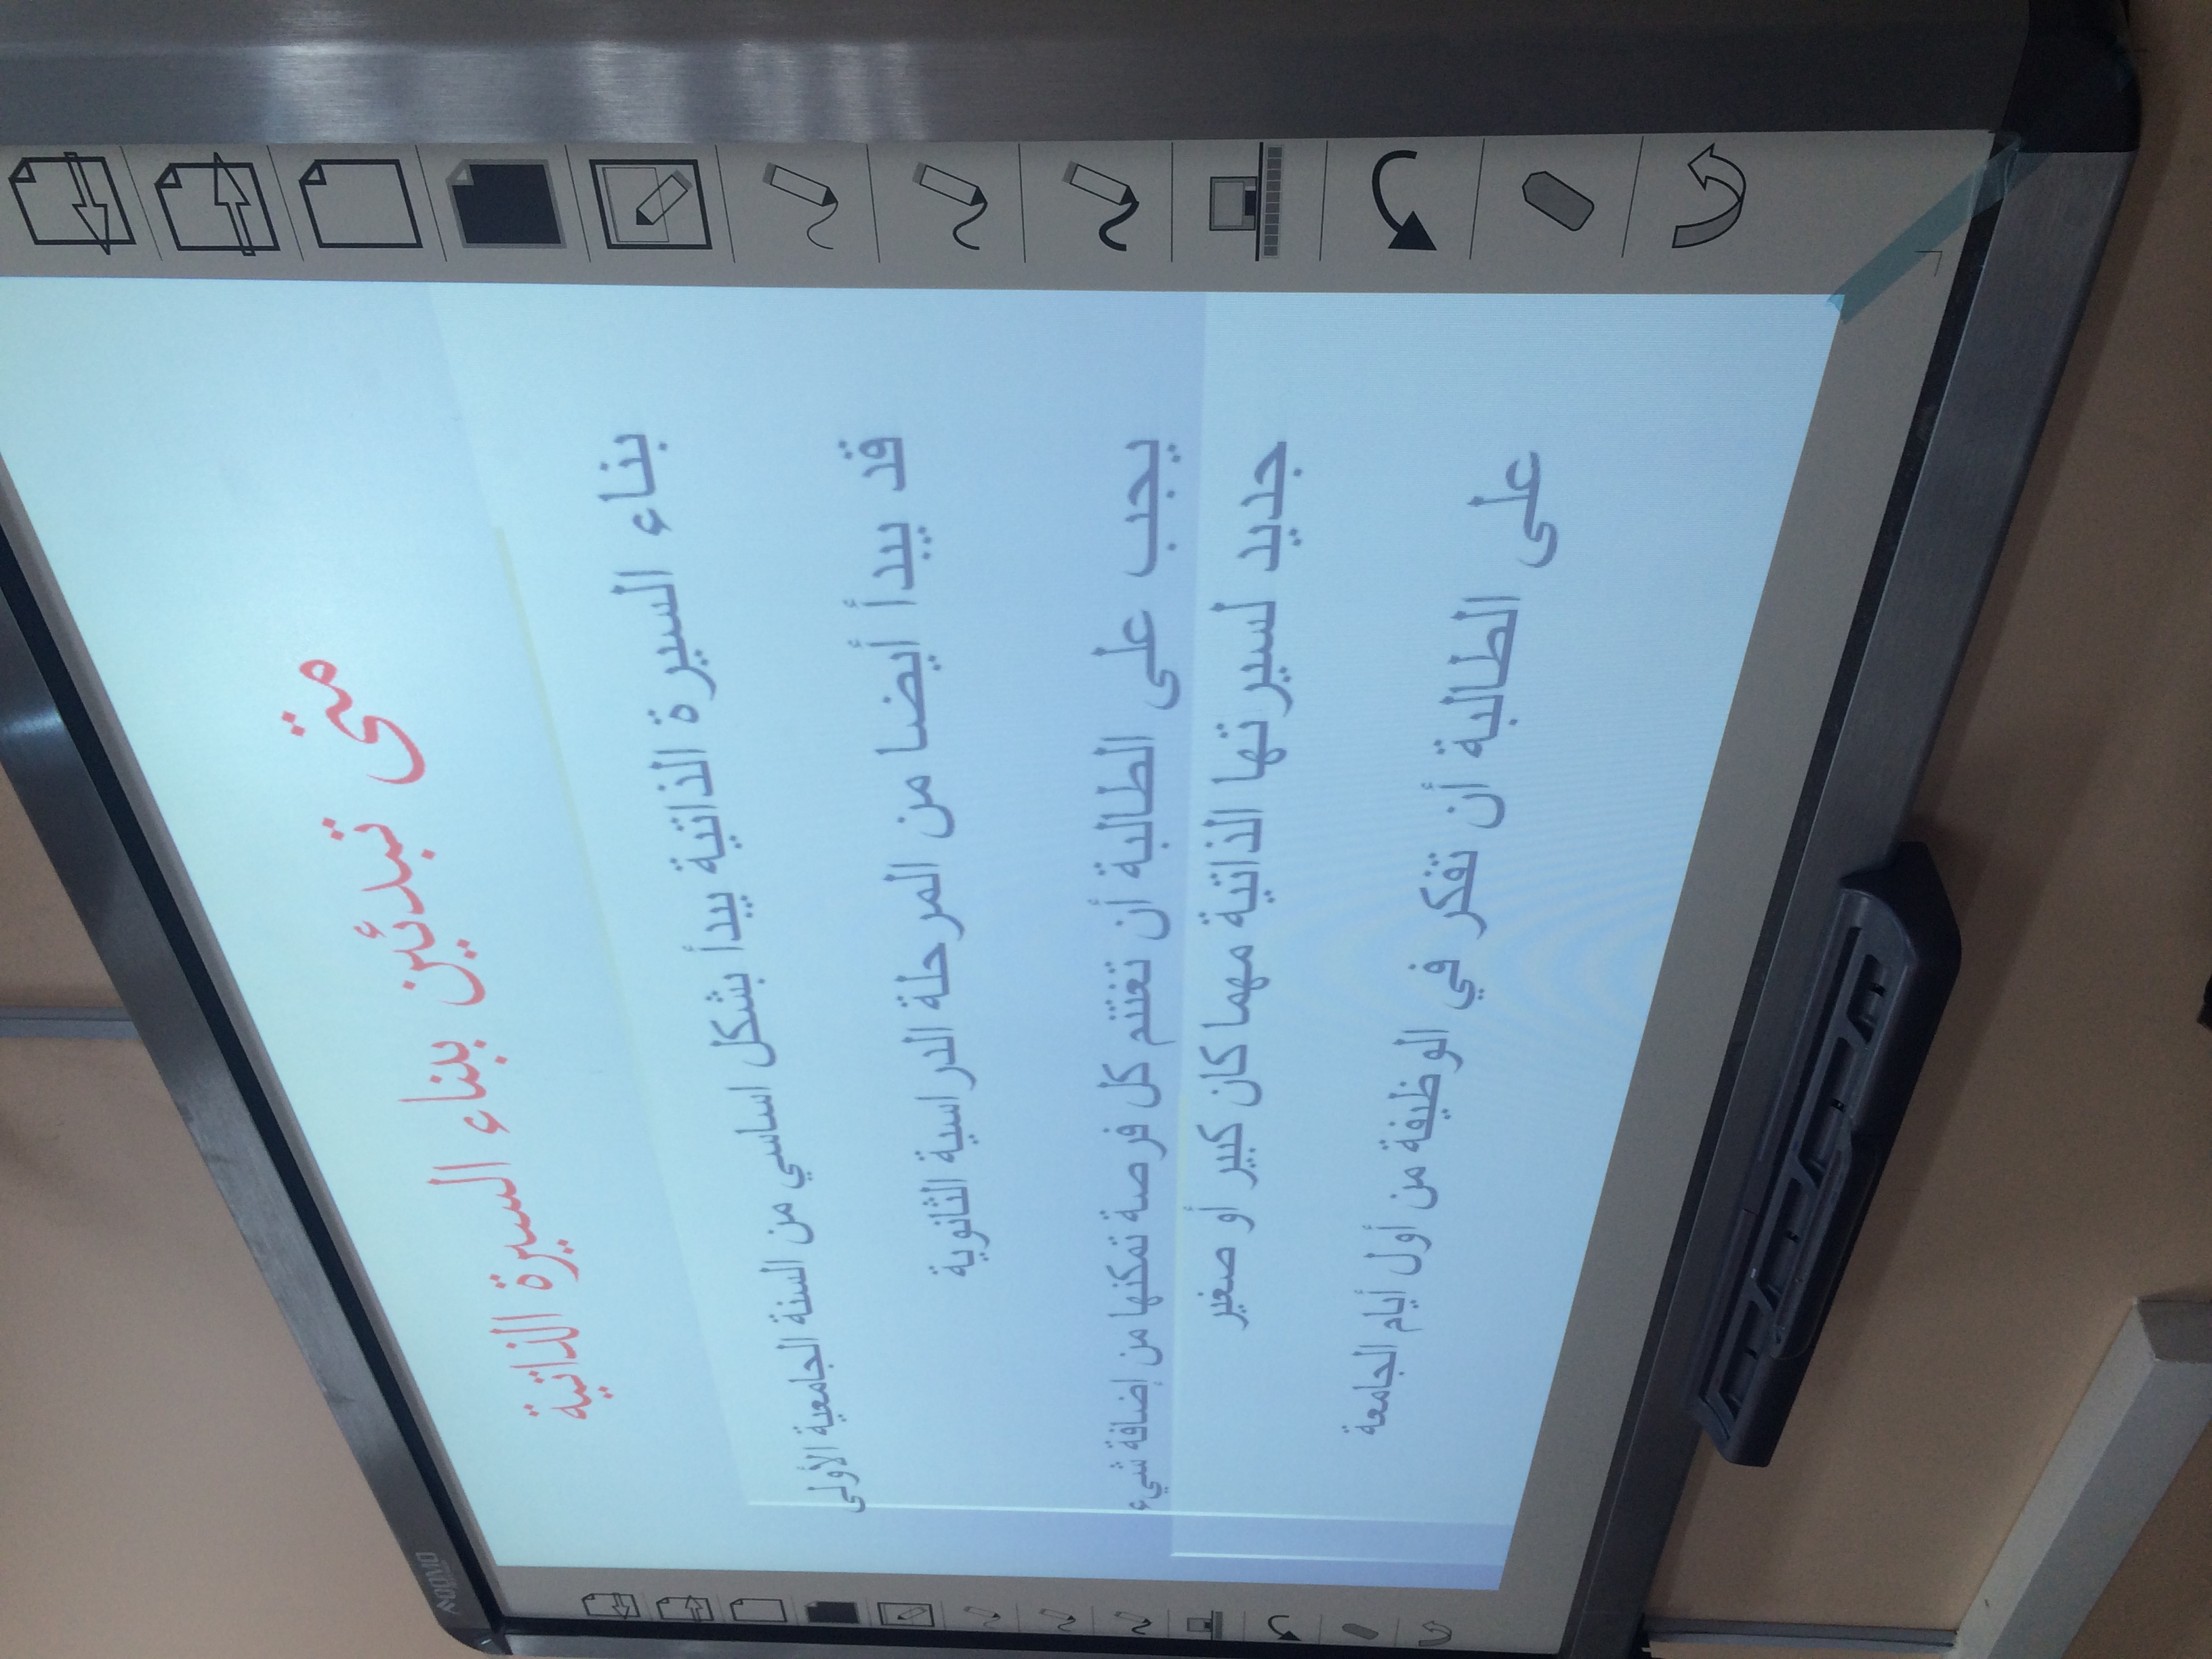 متى تبدئين بناء السيرة الذاتية
بناء السيرة الذاتية يبدأ بشكل اساسي من السنة الجامعية الأولى
قد يبدأ أيضا من المرحلة الدراسية الثانوية
يجب على الطالبة أن تغتنم كل فرصة تمكنها من إضافة شيء
جديد لسيرتها الذاتية مهما كان كبير أو صغير
على الطالبة أن تفكر في الوظيفة من أول أيام الجامعة